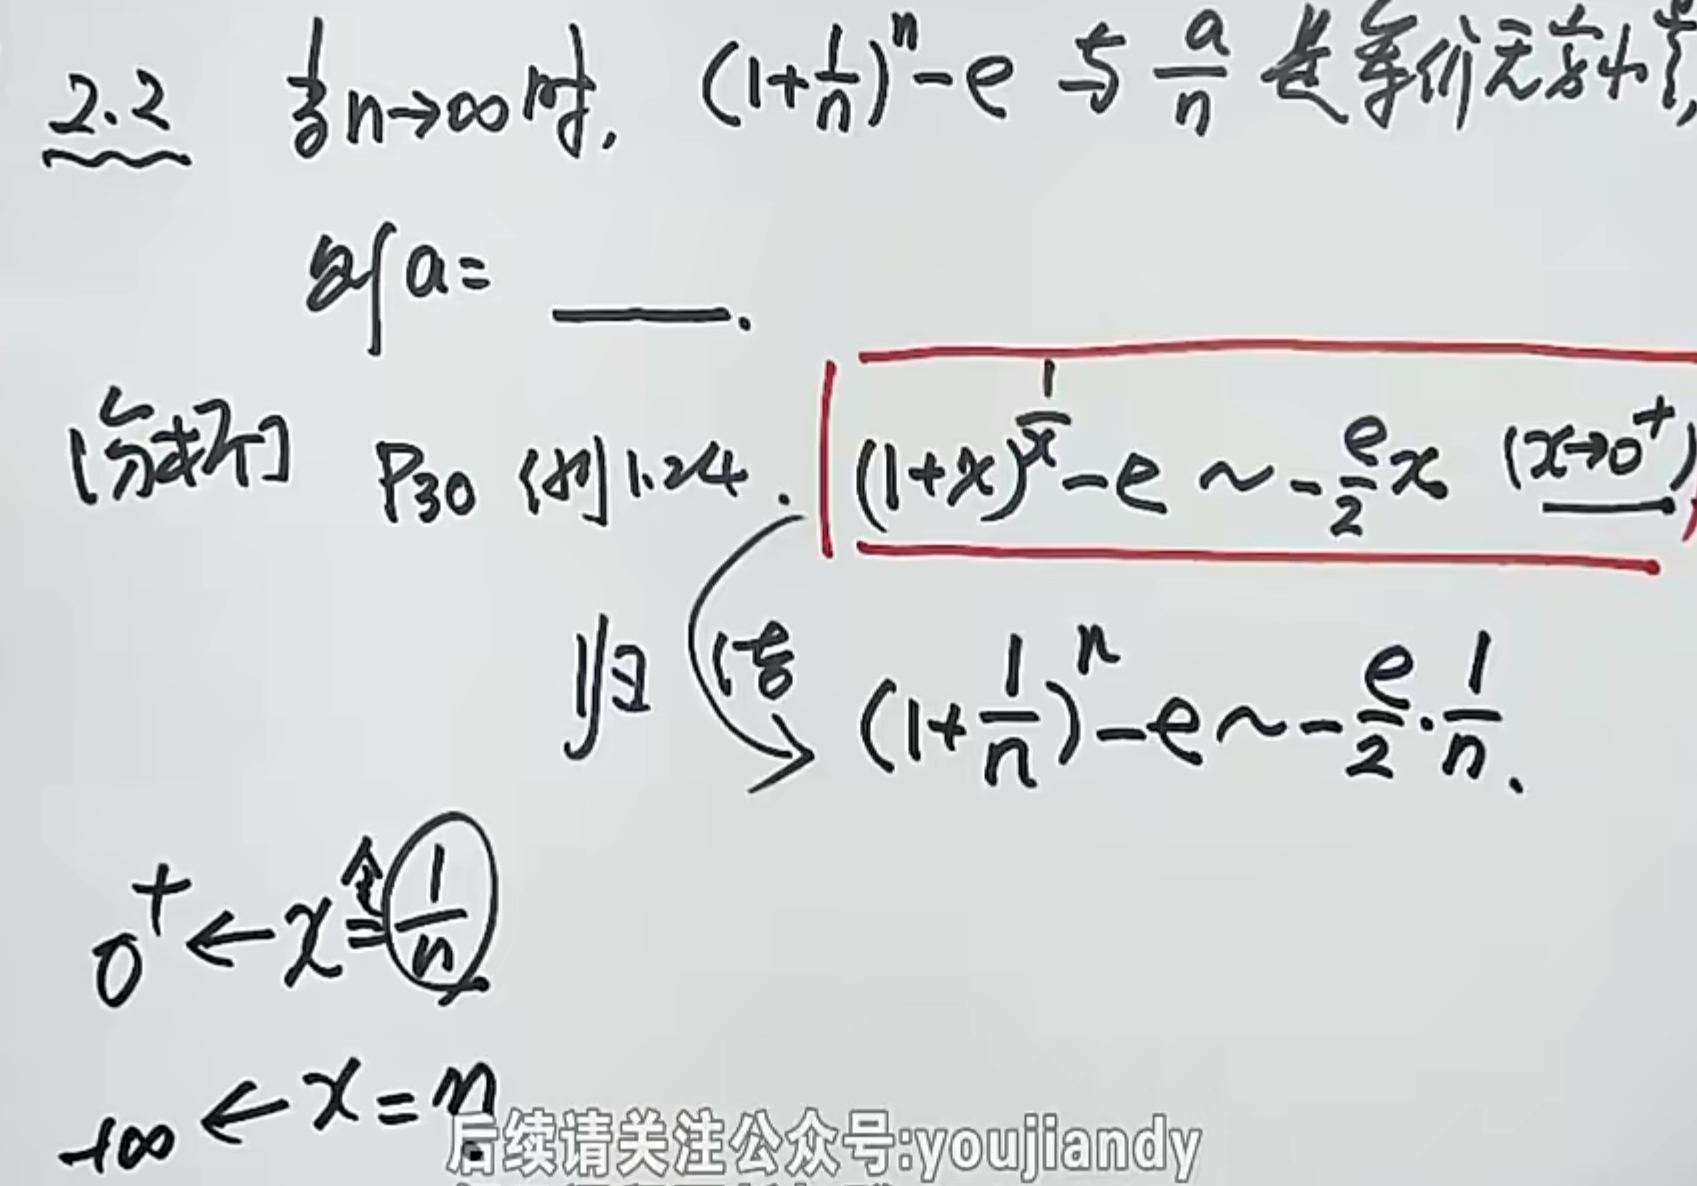 2.2 当n→∞时, (1+1/n)^n-e 与 a/n 是等价无穷小量,
则a= ____.
[分析] P30 例1.24. (1+x)^(1/x)-e ~ -e/2 x (x→0⁺)
归结 (1+1/n)^n-e~-e/2·1/n.
0⁺←x 令= 1/n
+∞←x=n
后续请关注公众号:youjiandy